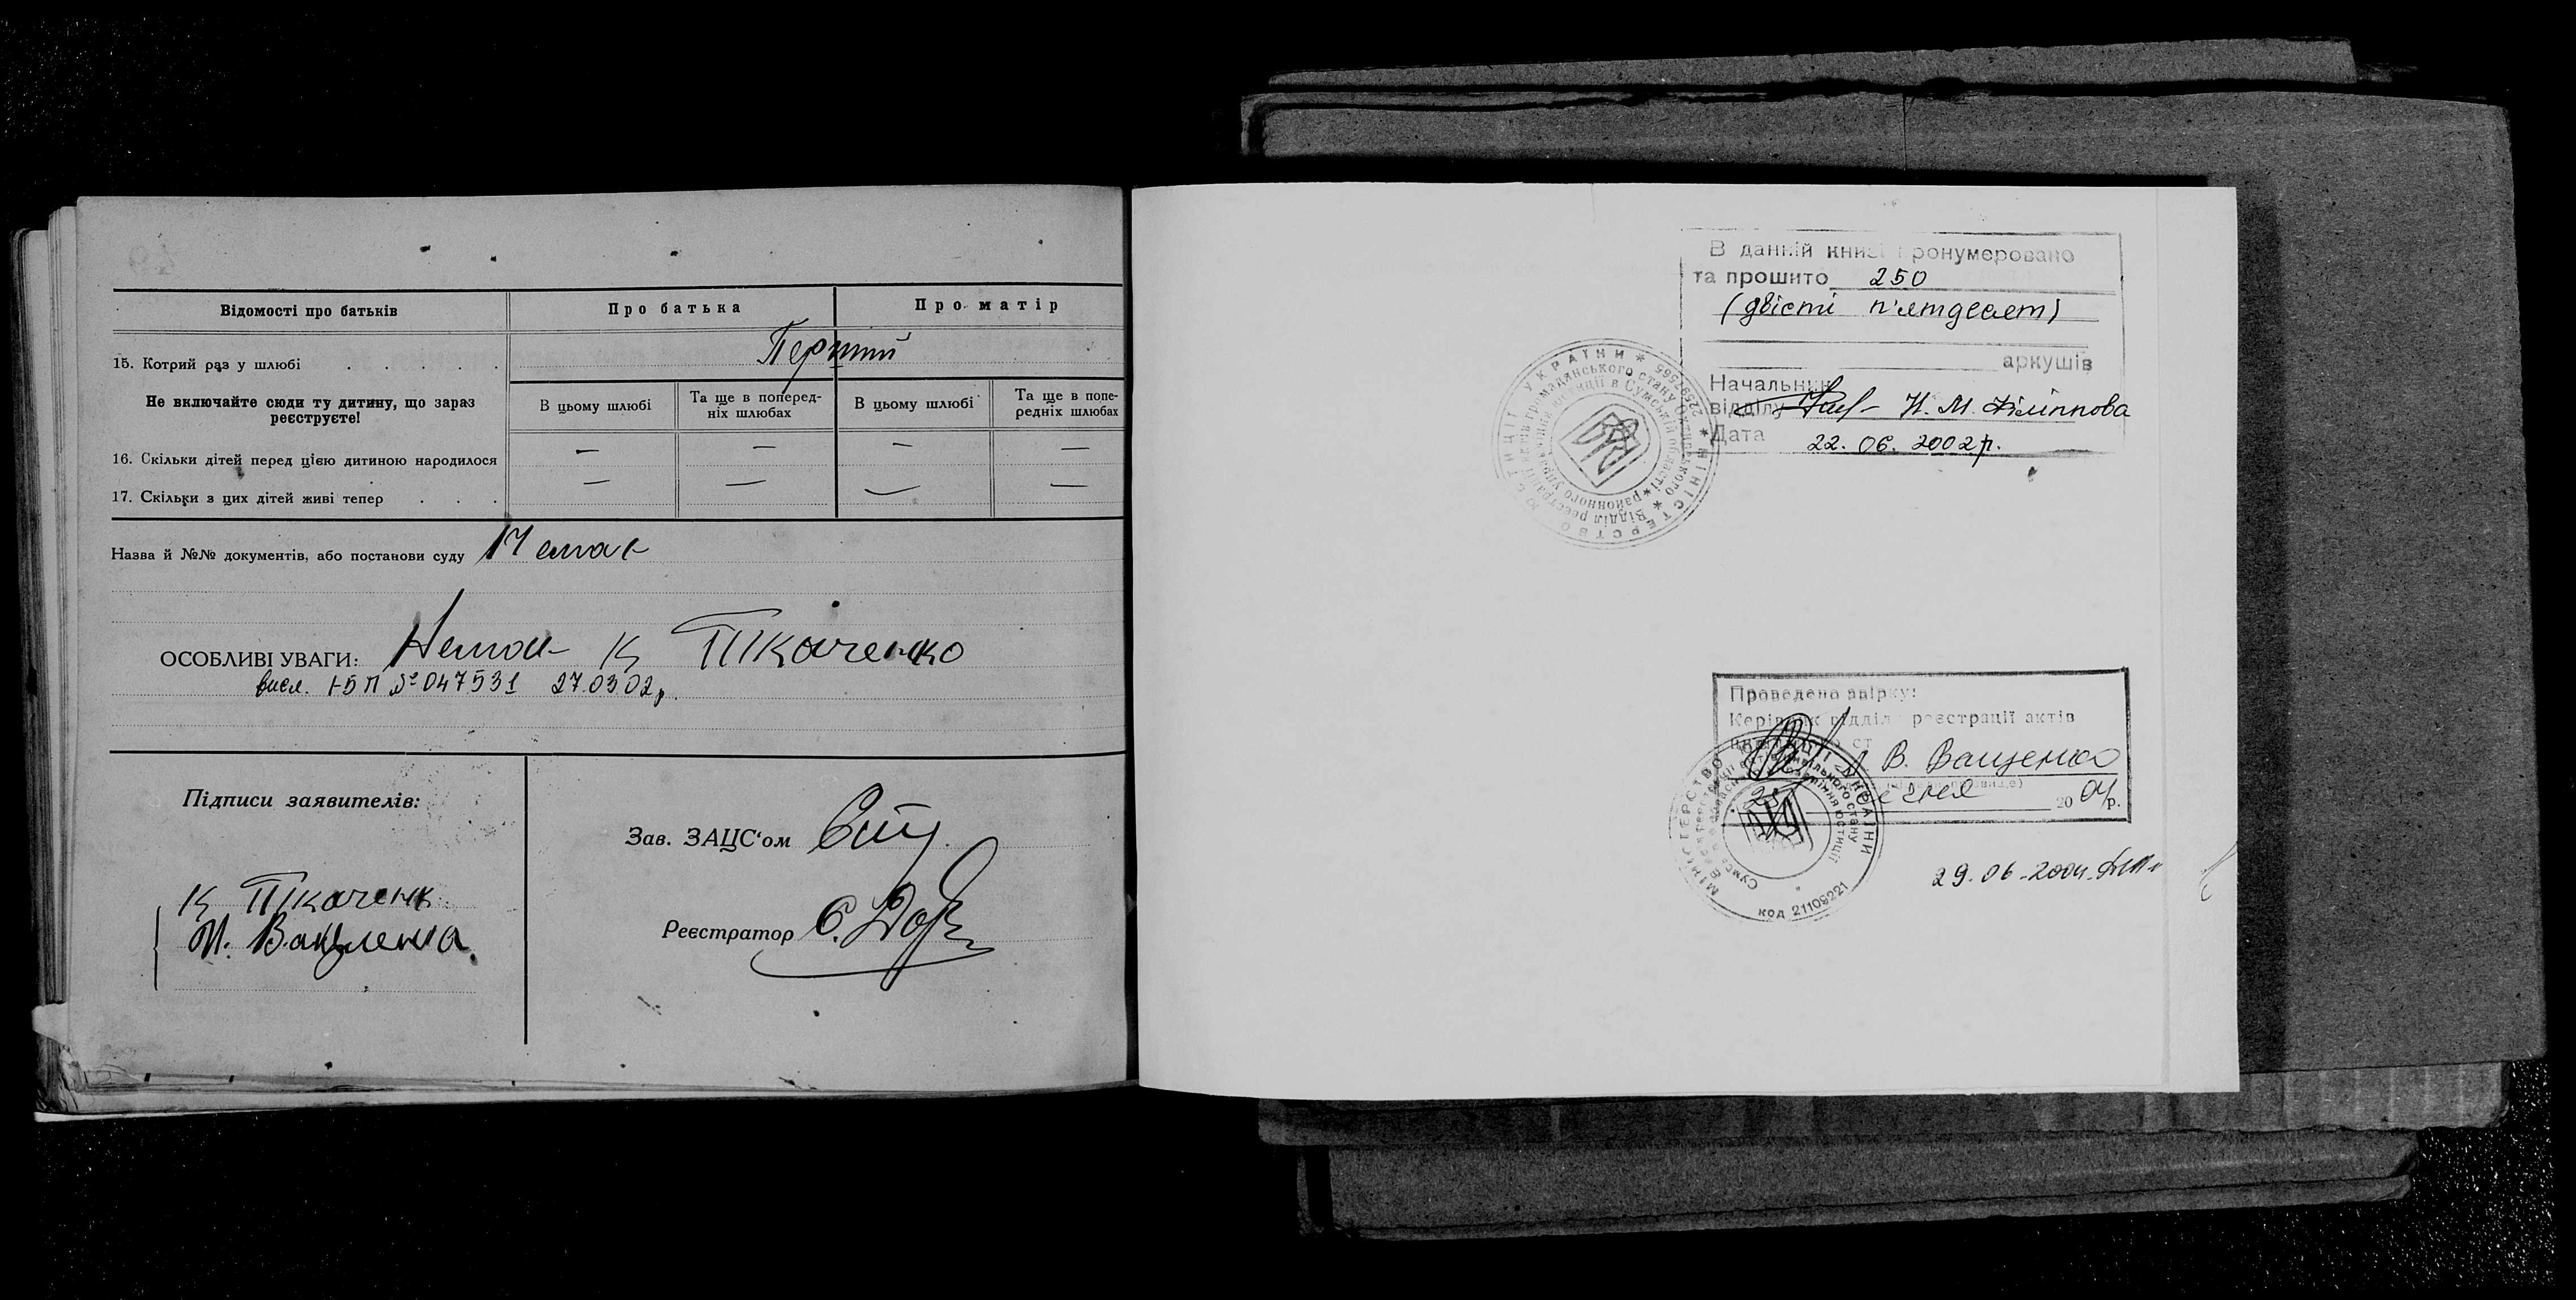 Відомості про батьків
Про батька
Про матір
15. Котрий раз у шлюбі . . . . .
Перший
Не включайте сюди ту дитину, що зараз реєструєте!
В цьому шлюбі
Та ще в поперед-
ніх шлюбах
В цьому шлюбі
Та ще в попе-
редніх шлюбах
16. Скільки дітей перед цією дитиною народилося
— — — —
17. Скільки з цих дітей живі тепер . . .
— — — —
Назва й №№ документів, або постанови суду Немає
ОСОБЛИВІ УВАГИ: Немає К Ткаченко
висл. І-БП № 047531 27.03 02р.
Підписи заявителів:
К Ткаченк
Зав. ЗАЦС'ом
Реєстратор
В данній книзі пронумеровано
та прошито 250
(двісті п'ятдесят)
аркушів
Начальник
відділу Н. М. Філіппова
Дата 22. 06. 2002р.
МІНІСТЕРСТВО ЮСТИЦІЇ УКРАЇНИ
22597565
Проведено звірку:
Керівник відділу реєстрації актів
В. Ващенко
2004р.
МІНІСТЕРСТВО ЮСТИЦІЇ УКРАЇНИ
код 21109221
29. 06 - 2004